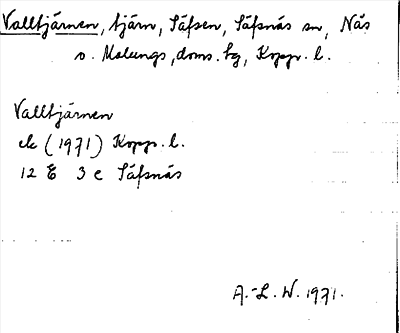 Valltjärnen, tjärn, Säfsen, Säfsnäs sn, Nås
o. Malungs, doms. hg, Kopp. l.
Valltjärnen
ek (1971) Kopp. l.
12 E 3 c Säfsnäs
A.-L. W. 1971.